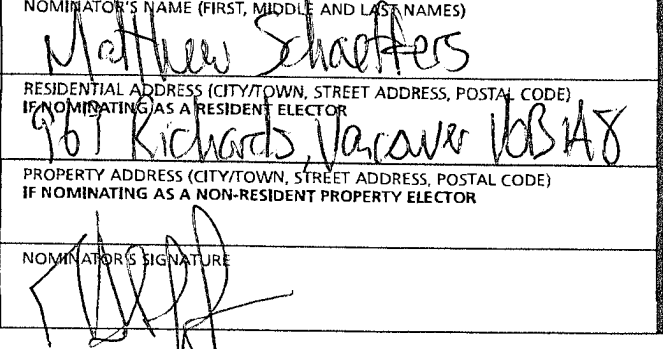 NOMINATOR'S NAME (FIRST, MIDDLE AND LAST NAMES)
Matthew Schaeffers
RESIDENTIAL ADDRESS (CITY/TOWN, STREET ADDRESS, POSTAL CODE)
IF NOMINATING AS A RESIDENT ELECTOR
Richards, Vancouver
PROPERTY ADDRESS (CITY/TOWN, STREET ADDRESS, POSTAL CODE)
IF NOMINATING AS A NON-RESIDENT PROPERTY ELECTOR
NOMINATOR'S SIGNATURE